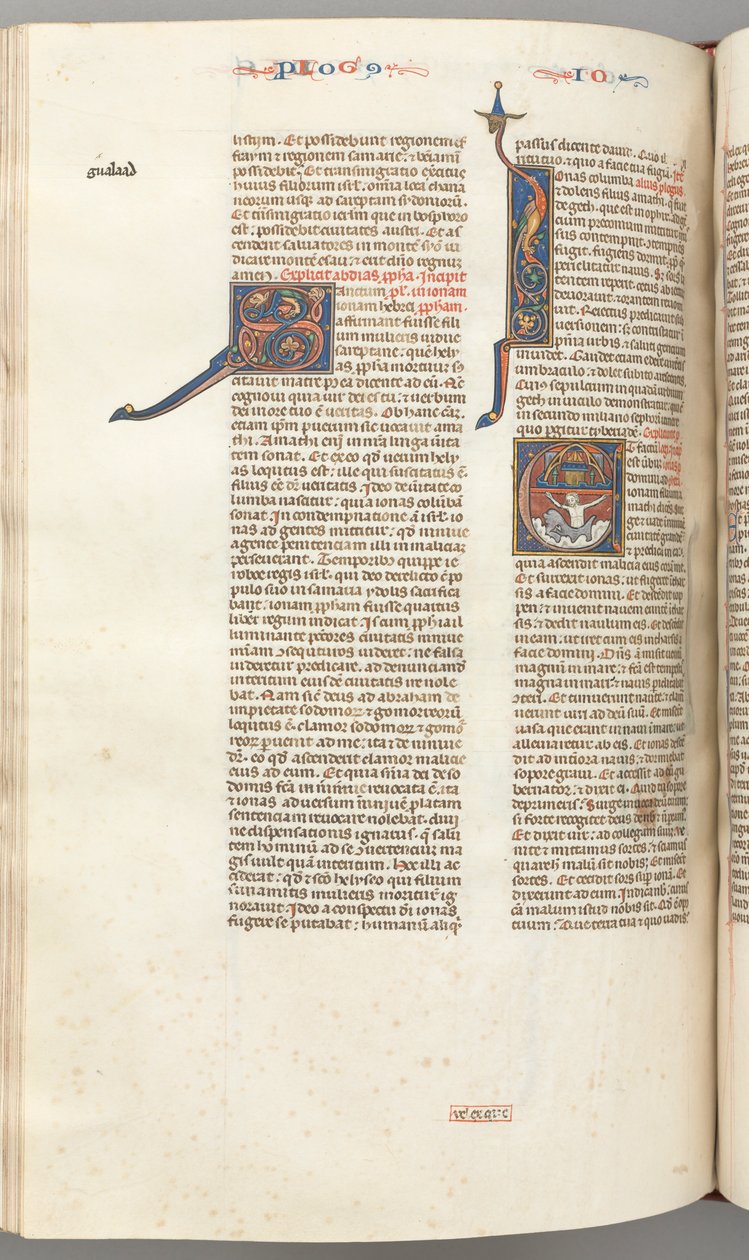 PLOG9
IO
gualaad
listiim. Et possidebunt regionem ef
fraym & regionem samarie: & beniam
possidebit. Et transmigratio exercitus
huius filiorum isrl. omnia loca chana
neorum usq; ad sareptam sydoniorum.
Et transmigratio ierlm que in bosphoro
est: possidebit civitates austri. Et as
cendent salvatores in montem syon iu
dicare montem esau: & erit dno regnum
amen. Explicit abdias ppha. Incipit
Sanctum pl. in ionam
ionam hebrei ppham.
affirmant fuisse fili
um mulieris vidue
sareptane: quem hely
as ppha mortuum sus
citavit matre p ea dicente ad eum. Nc
cognovi quia vir dei es tu: & verbum
dei in ore tuo e veritas. Ob hanc cam
etiam ipm puerum sic vocavit ama
thi. Amathi eni in nra lingua verita
tem sonat. Et ex eo qd verum hely
as locutus est: ille qui suscitatus e
filius ee dr veritatis. Ideo de veritate co
lumba nascitur: quia ionas columbam
sonat. In condempnatione isrl. io
nas ad gentes mittitur: qd ninive
agente penitenciam illi in malicia
perseverant. Temporibus quippe ie
roboe regis isrl. qui deo derelicto c po
pulo suo in samaria ydolis sacrifica
bant: ionam ppham fuisse quartus
liber regum indicat. Is cum ppha il
luminante peccatores civitatis ninive
niam consequturos videret: ne falsa
videretur predicare. ad denunciandum
interitum eiusdem civitatis ire nole
bat. Nam sic deus ad abraham de
impietate sodomorum & gomorreorum
loquitus e. clamor sodomorum & gomor
reorum pervenit ad me: ita & de ninive
dr. eo qd ascenderit clamor malicie
eius ad eum. Et quia sententia dei de so
domis facta in nimie revocata e. ita
& ionas adversum ninivem platam
sentenciam revocare nolebat. divi
ne dispensationis ignarus. q salu
tem hominum ad se convertencium ma
gis vult quam interitum. Hoc illi ac
ciderat: qd & sco helyseo qui filium
sunamitis mulieris moriturum ig
noravit. Ideo a conspectu dni ionas
fugere se putabat: humanum aliq
passus dicente david. Quo i
spiritu tuo. & quo a facie tua fugiam. Ite
Ionas columba alius plogus
& dolens filius amathi. q fuit
de geth. que est in ophir. ad
cium preconium mittitur
sus contempnit: contempnens
fugit. fugiens dormit. pp q
periclitatur navis. Sors la
tentem reperit. cetus abiectum
devoravit. & orantem revom
uit. Reiectus predicavit
versionem: & contristatur
pnia urbis. & saluti gentium
invidet. Gaudet etiam edere virentis
umbraculo. & dolet subito arescentis.
Cuius sepulcrum in quadam urbium
geth in viculo demonstratur. que
in secundo miliario sephorim
quo pgitur tyberiade. Explicit
Et factum
est verbum
domini ad
ionam filium a
mathi dicens sur
ge: & vade in ninive
civitatem grandem
& predica in ea:
quia ascendit malicia eius coram me.
Et surrexit ionas: ut fugeret in thar
sis a facie domini. Et descendit iop
pen: & invenit navem euntem in thar
sis: & dedit naulum eis. Et descendit
in eam: ut iret cum eis in tharsis a
facie domini. Dns a misit ventum
magnum in mare: & fca est tempestas
magna in mari: & navis periclitabatur
conteri. Et timuerunt naute: & clama
verunt viri ad deum suum. Et miserunt
vasa que erant in navi in mare: ut
alleviaretur ab eis. Et ionas descen
dit ad intiora navis: & dormiebat
sopore gravi. Et accessit ad eum gu
bernator: & dixit ei. Quid tu sopore
deprimeris? Surge invoca deum tuum:
si forte recogitet deus de nobis & n peream9.
Et dixit vir: ad collegam suum. ve
nite & mittamus sortes: & sciamus
quare h malum sit nobis. Et miserunt
sortes. Et cecidit sors sup ionam. Et
dixerunt ad eum. Indica nb: cuius
ca malum istud nobis sit. Qd e op9
tuum: Que terra tua & quo vadis:
vel ex qu e